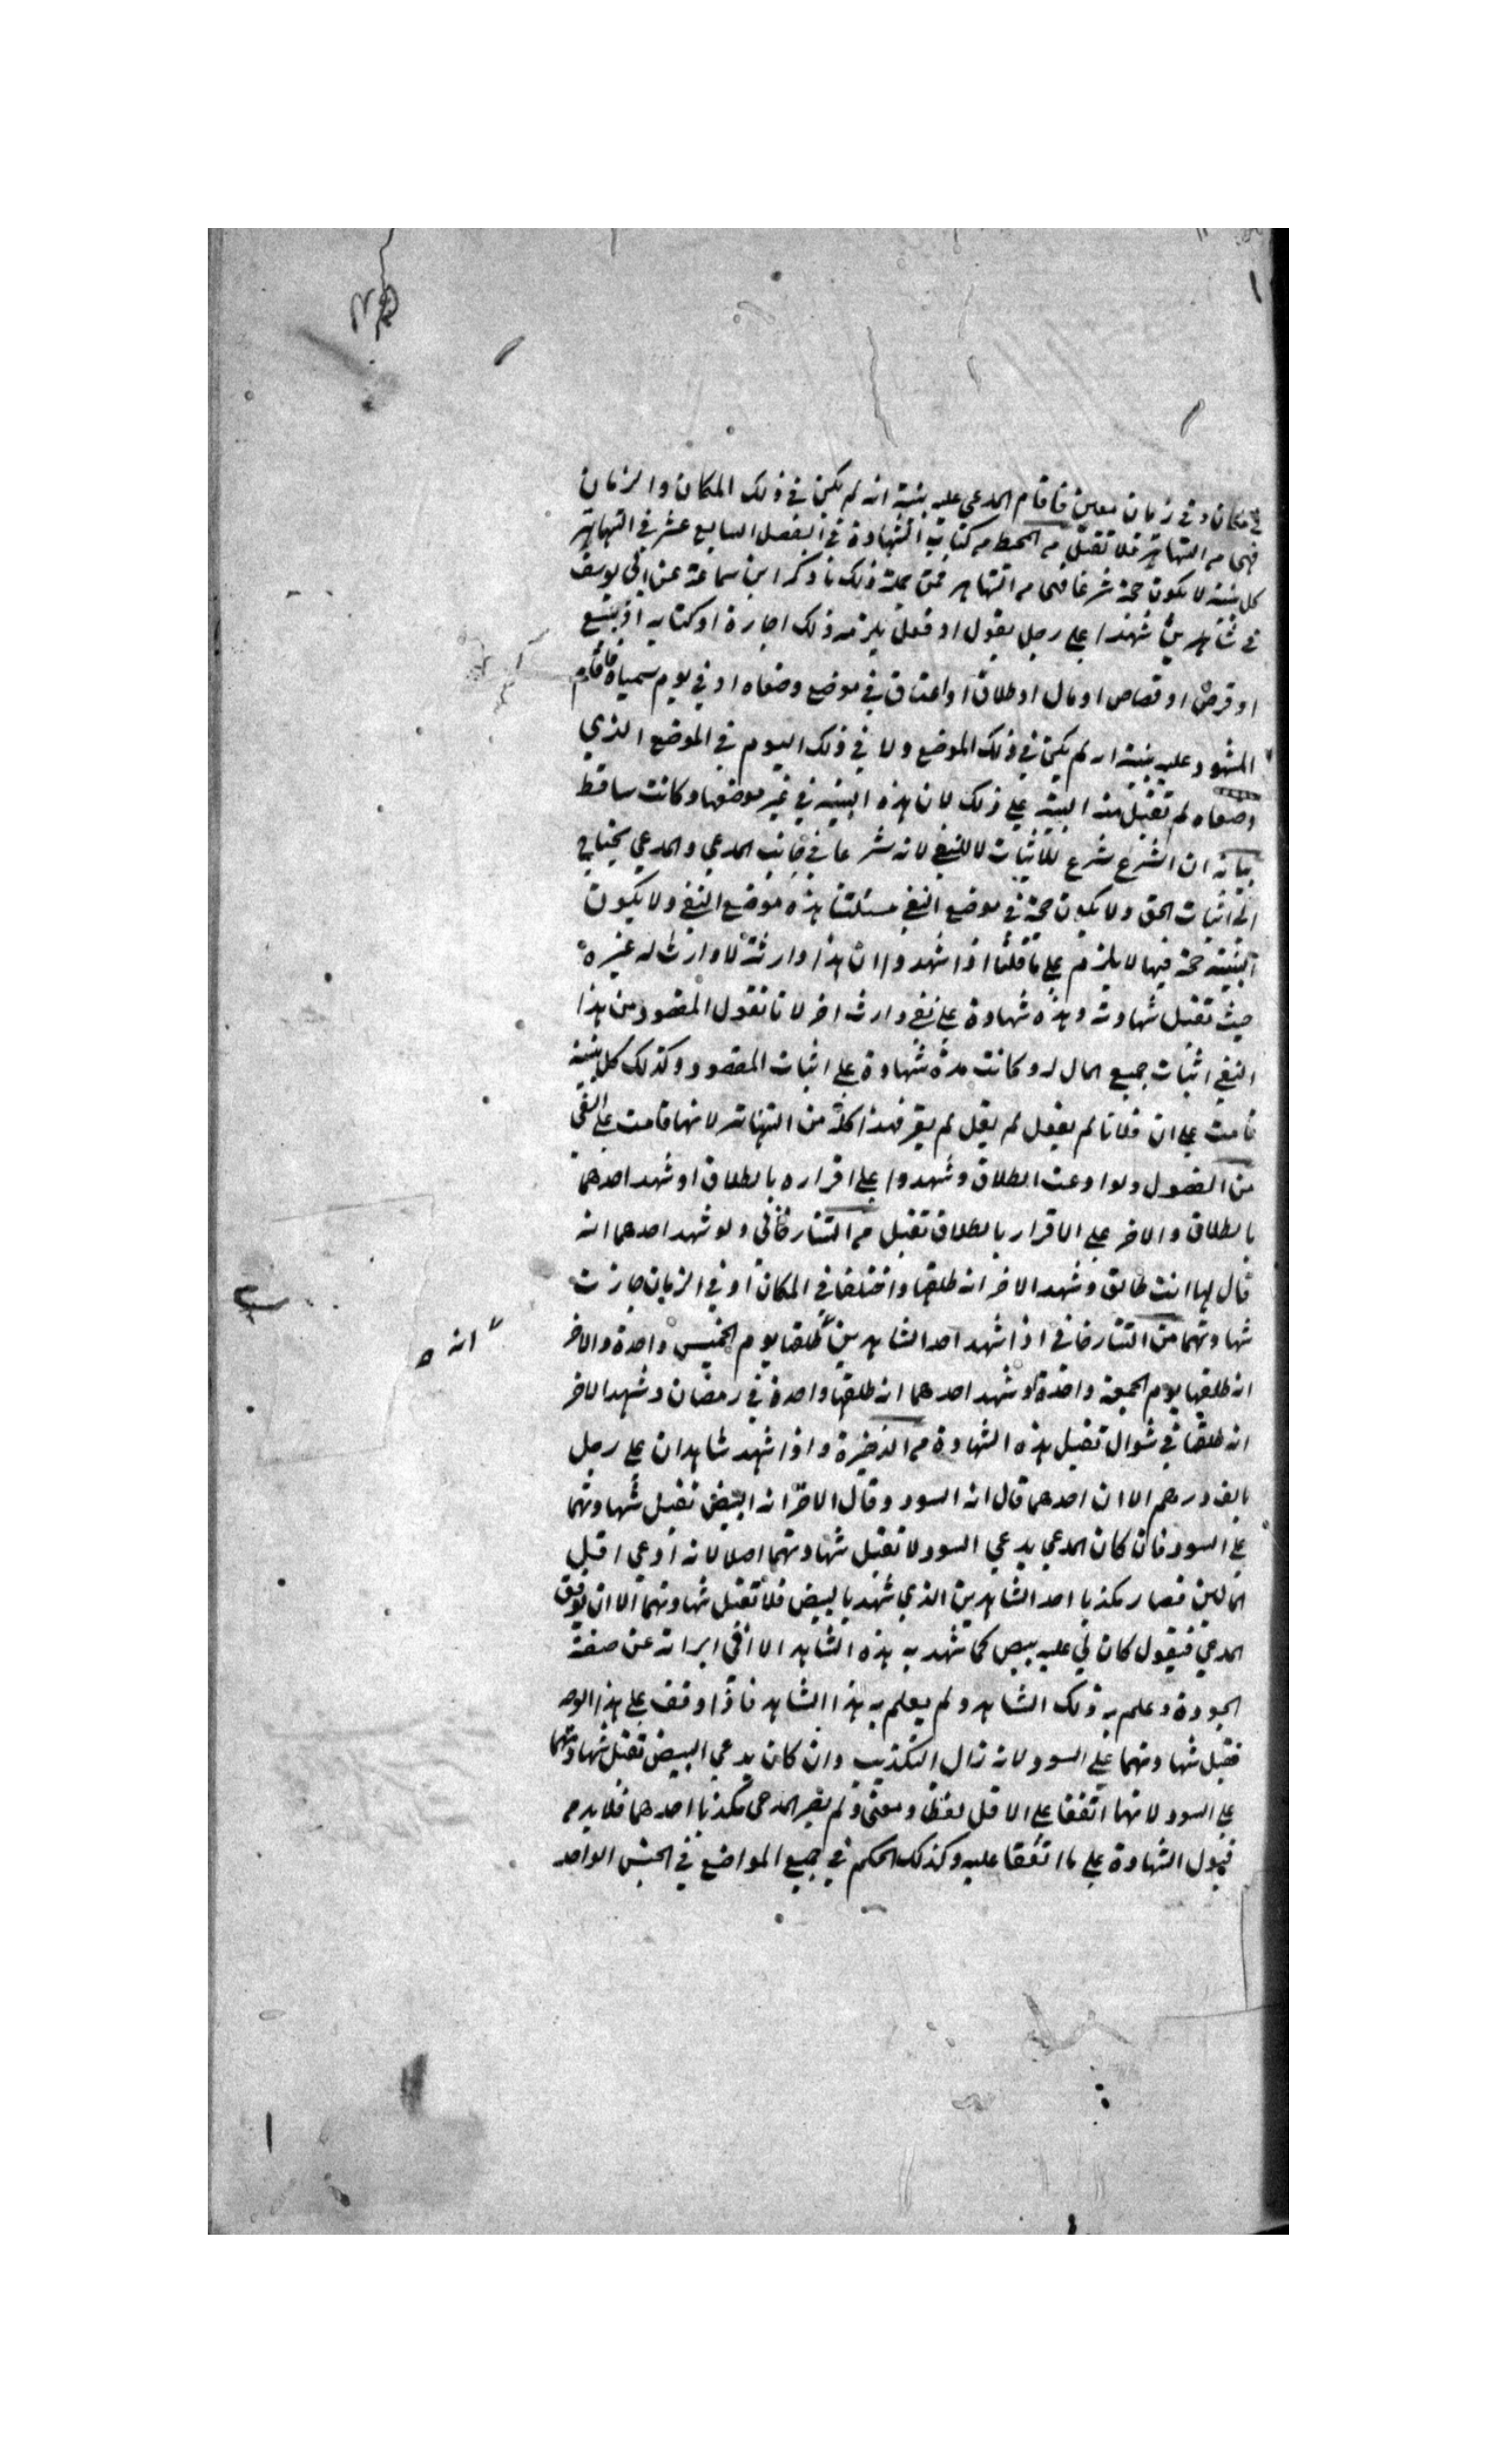 في مكان وفي زمان معين فاقام المدعي عليه بينة انه لم يكن في ذلك المكان والزمان
فهما من التهاتر فلا تقبل من المحيط من كتاب الشهادة في الفصل السابع عشر في التهاتر
كل بينة لا يكون حجة شرعا فهما من التهاتر فمن جملة ذلك ما ذكر ابن سماعة عن ابي يوسف
في شاهدين شهدا على رجل بقول او فعل يلزمه ذلك اجارة او كتابه او بيع
او قرض او قصاص او مال او طلاق او اعتاق في موضع وصفاه او في يوم سمياه فاقام
المشهود عليه بينة انه لم يكن في ذلك الموضع ولا في ذلك اليوم في الموضع الذي
وصفاه لم تقبل منه البينة على ذلك لان هذه البينة في غير موضعها وكانت ساقط
بيانه ان الشرع شرع للاثبات لا للنفي لانه شرعا في جانب المدعي والمدعي يحتاج
الى اثبات الحق ولا يكون حجة في موضع النفي مسئلتنا هذه موضع النفي ولا يكون
البينة حجة فيها لا يلزم على ما قلنا اذا شهدوا ان هذا وارثه لا وارث له غيره
حيث تقبل شهادته وهذه شهادة على نفي وارث اخر لانا نقول المقصود من هذا
النفي اثبات جميع المال له وكانت هذه شهادة على اثبات المقصود وكذلك كل بينة
قامت على ان فلانا لم يفعل لم يقل لم يقر فهذا كله من التهاتر لانها قامت على النفي
من الفصول ولو ادعت الطلاق وشهدوا على اقراره بالطلاق او شهد احدهما
بالطلاق والاخر على الاقرار بالطلاق تقبل من التتارخاني ولو شهد احدهما انه
قال لها انت طالق وشهد الاخر انه طلقها واختلفا في المكان او في الزمان جازت
شهادتهما من التتارخاني اذا شهد احد الشاهدين طلقها يوم الخميس واحدة والاخر
انه
انه طلقها يوم الجمعة واحدة او شهد احدهما انه طلقها واحدة في رمضان وشهد الاخر
انه طلقها في شوال تقبل هذه الشهادة من الذخيرة واذا شهد شاهدان على رجل
بالف درهم الا ان احدهما قال انه السود وقال الاخر انه البيض تقبل شهادتهما
على السود فان كان المدعي يدعي السود لا تقبل شهادتهما اصلا لانه ادعى اقل
المالين فصار مكذبا احد الشاهدين الذي شهد بالبيض فلا تقبل شهادتهما الا ان يوفق
المدعي فيقول كان لي عليه بيض كما شهد به هذه الشاهد الا اني ابراته عن صفة
الجودة وعلم به ذلك الشاهد ولم يعلم به هذا الشاهد فاذا وقف على هذا الوجه
فقبل شهادتهما على السود لانه زال التكذيب وان كان يدعي البيض تقبل شهادتهما
على السود لانهما اتفقا على الاقل لفظا ومعنى ولم يصر المدعي مكذبا احدهما فلا بد من
قبول الشهادة على ما اتفقا عليه وكذلك الحكم في جميع المواضع في الجنس الواحد